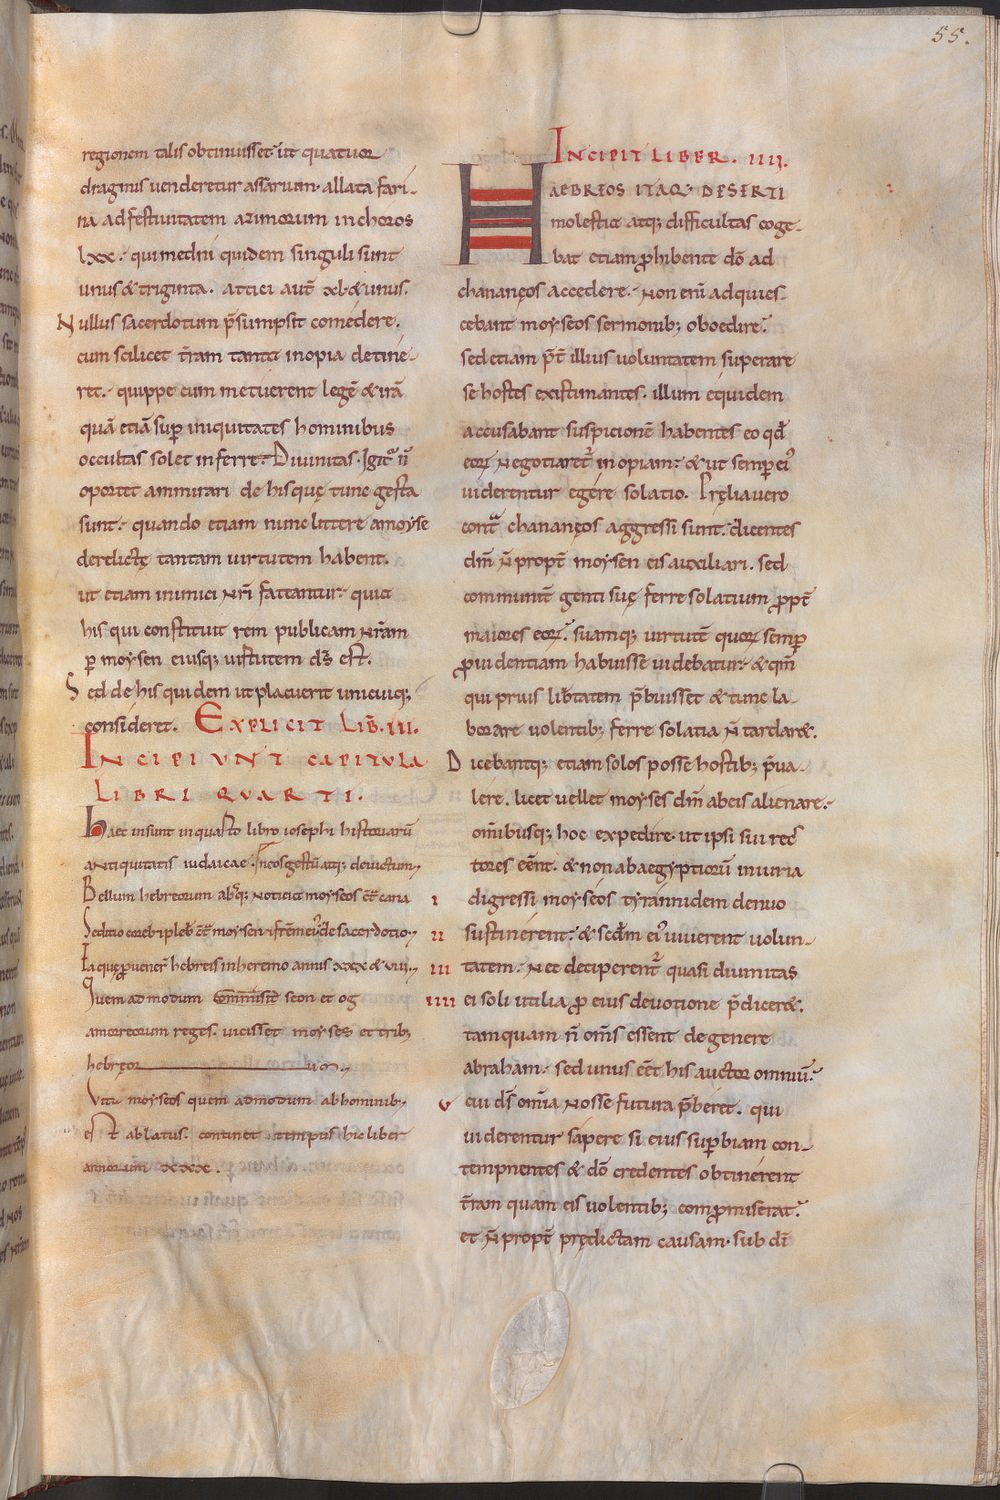 55.
regionem talis obtinuisset ut quatuor
dragmis uenderetur assarum· allata fari-
na ad festiuitatem azimorum in choros
lxx· qui medini quidem singuli sunt
unus & triginta· attici aut̄ xl·& unus.
Nullus sacerdotum p̄sumpsit comedere.
cum scilicet t̄ram tanta inopia detine-
ret· quippe cum metuerent legē & irā
quā etiā sup̱ iniquitates hominibus
occultas solet inferre· Diuinitas· Igit̉ n̄
oportet ammirari de hisque tunc gesta
sunt· quando etiam nunc littere amoyse
derelictę tantam uirtutem habent.
ut etiam inimici nr̄i fateantur· quia
his qui constituit rem publicam nr̄am
ꝑ moysen eiusq; uirtutem ds̄ est.
Sed de his quidem ut placuerit unicuiq;
consideret. Explicit Lib̄.III.
Incipiunt capitula
Libri Quarti.
Haec insunt in quarto libro iosephi historiarū
antiquitatis iudaicae·
Bellum hebreorum absq; noticia moyseos
Seditio
hebreis inheremo annis xxx & uiii
Quem admodum seon et og
amorreorum reges. uicisset moyses et trib;
hebręor
Vita moyseos quem admodum abhominib;
est ablatus. continet temptis hic liber
annorum xxxx.
Incipit Liber. IIII.
HAEBREOS ITAQ; DESERTI
molestia atq; difficultas coge-
bat etiam ꝓhibente dō ad
chananęos accedere· Non eni̅ adquies-
cebant moyseos sermonib; oboedire·
sed etiam p̄t̄ illius uoluntatem superare
se hostes existimantes. illum equidem
accusabant suspicionē habentes eo qd̄
eoꝝ negotiaret̉ inopiam· & ut semꝑ eỉ
uiderentur egere solatio. Pręlia uero
contra chananęos aggressi sunt· dicentes
dm̄ n̄ propt̄ moysen eis auxiliari. sed
communit̄ genti suę ferre solatium ꝓpt̄
maiores eoꝝ· suamq; uirtutē quoꝝ semꝑ
ꝓuidentiam habuisse uidebatur· & qm̄
qui prius lib̄tatem p̄buisset & tunc la-
borare uolentib; ferre solatia n̄ tardar&.
Dicebantq; etiam solos posse hostib; p̄ua-
lere. licet uellet moyses dm̄ abeis alienare·
om̄ibusq; hoc expedire· ut ipsi sui rec-
tores eēnt. & non abaegyptiorū iniuria
digressi moyseos tyrannidem denuo
sustinerent· & scd̄m eỉ uiuerent uolun-
tatem· Nec deciperent̉ quasi diuinitas
ei soli utilia ꝓ eius deuotione p̄dicer&.
tamquam n̄ om̄s essent degenere
abraham· sed unus eēt his auctor omniū·
cui ds̄ om̄ia nosse futura p̄beret. qui
uiderentur sapere si eius suꝑbiam con-
tempnentes & dō credentes obtinerent
t̄ram quam eis uolentib; compromiserat·
et n̄ propt̄ prędictam causam· sub di
I
II
III
IIII
V